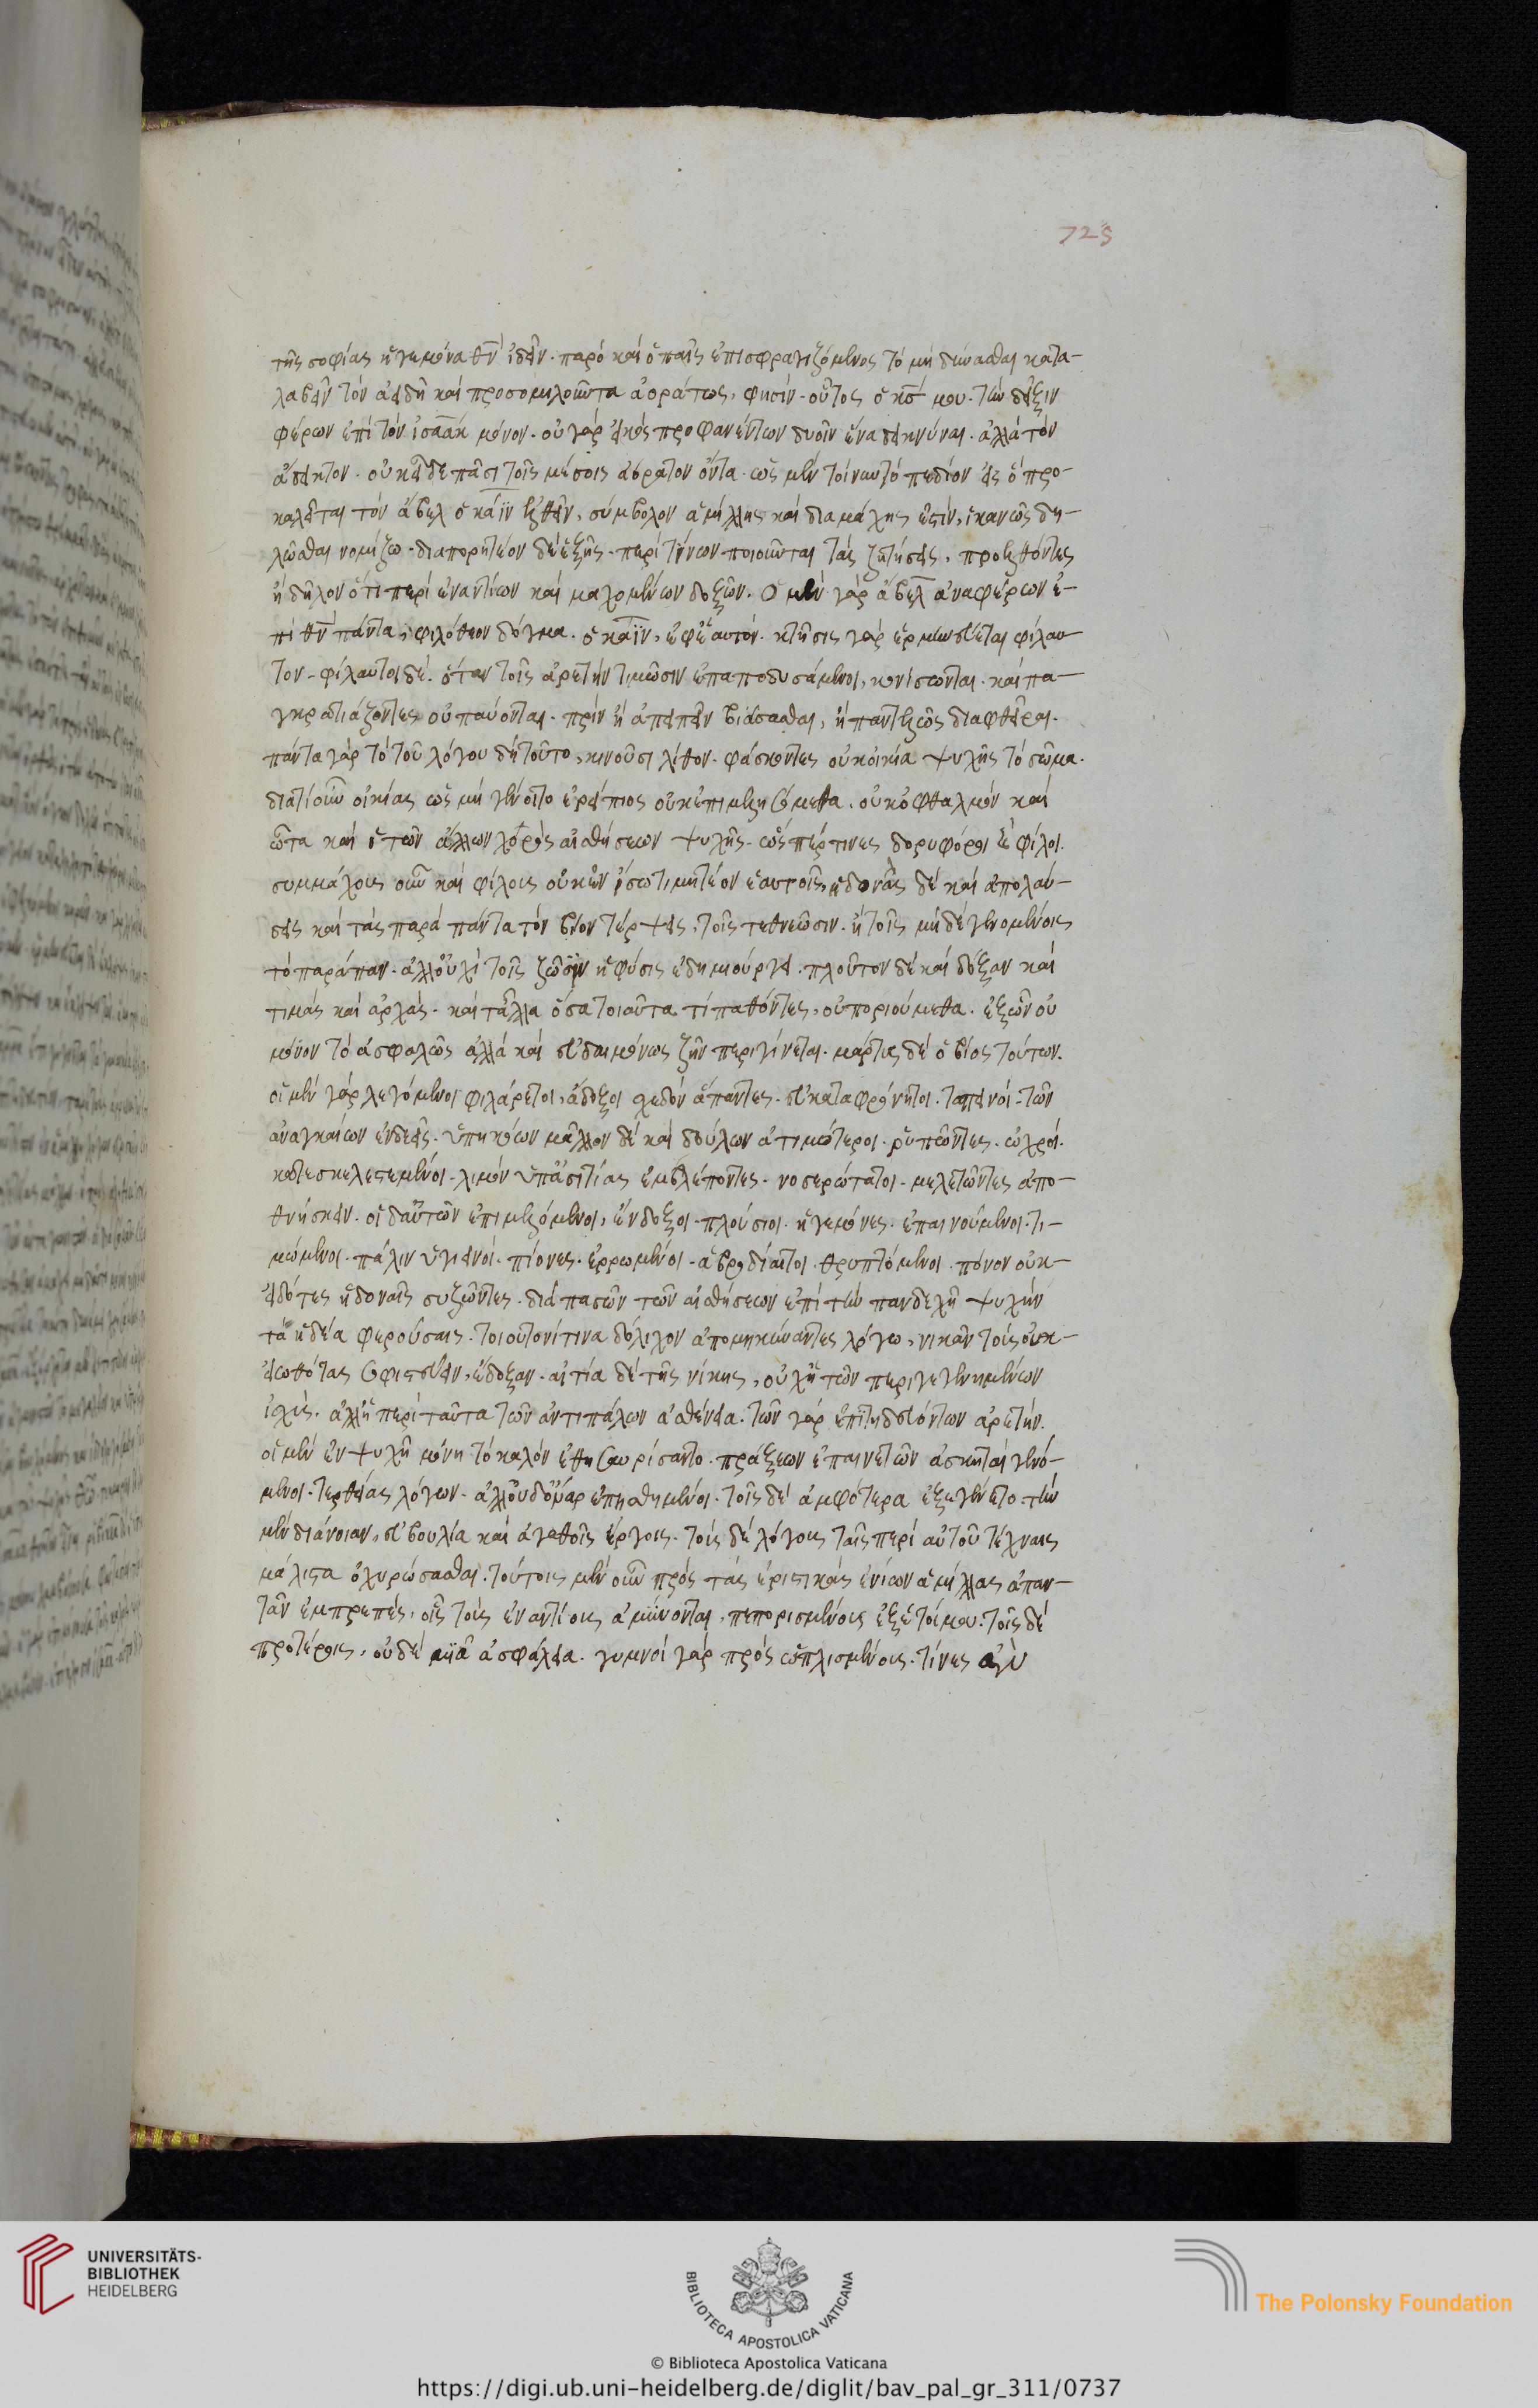 725
τῆς σοφίας ἡγεμόνα θν̅ ἰδεῖν. παρό καί ὁ παῖς ἐπισφραγιζόμενος τό μή δύνασθαι κατα-
λαβεῖν τόν ἀειδῆ καί προσομιλοῦντα ἀοράτως, φησίν. οὗτος ὁ κσ̅ μου. τήν δεῖξιν
φέρων ἐπί τόν ἰσαάκ μόνον. οὐ γάρ εἰκός προφανέντων δυοῖν ἕνα δεικνύναι. ἀλλά τόν
ἄδεικτον. οὐκ εἶδε πᾶσι τοῖς μέσοις ἀόρατον ὄντα. ὡς μέν τοίνυν τό πεδίον εἰς ὃ προ-
καλεῖται τόν ἄβελ ὁ κάϊν ἐλθεῖν, σύμβολον ἁμίλλης καί διαμάχης ἐστίν, ἱκανῶς δη-
λῶσθαι νομίζω. διαπορητέον δέ ἑξῆς. περί τίνων ποιοῦνται τάς ζητήσεις, προελθόντες
ἢ δῆλον ὅτι περί ἐναντίων καί μαχομένων δοξῶν. Ὁ μέν γάρ ἄβελ ἀναφέρων ἐ-
πί θν̅ πάντα, φιλόθεον δόγμα. ὁ κάϊν, ἐφ' ἑαυτόν. κτῆσις γάρ ἑρμηνεύεται φίλαυ
τον. φίλαυτοι δέ. ὅταν τοῖς ἀρετήν τιμῶσιν ἐπαποδυσάμενοι, κονίσωνται. καί πα-
γκρατιάζοντες οὐ παύονται. πρίν ἢ ἀπειπεῖν βιάσασθαι, ἢ παντελῶς διαφθεῖραι.
πάντα γάρ τό τοῦ λόγου δή τοῦτο, κινοῦσι λίθον. φάσκοντες οὐκ οἰκία ψυχῆς τό σῶμα.
διατί οὖν οἰκίας ὡς μή γένοιτο ἐρείπιος οὐκ ἐπιμελησόμεθα. οὐκ ὀφθαλμόν καί
ὦτα καί ὁ τῶν ἄλλων χορός αἰσθήσεων ψυχῆς. ὥσπερ τινες δορυφόροι καί φίλοι.
συμμάχους οὖν καί φίλους οὐκ ἐν ἴσω τιμητέον ἑαυτοῖς, ἡδονάς δέ καί ἀπολαύ-
σεις καί τάς παρά πάντα τόν βίον τέρψεις, τοῖς τεθνεῶσιν. ἢ τοῖς μηδέ γενομένοις
τό παράπαν. ἀλλ' οὐχί τοῖς ζῶσιν ἡ φύσις ἐδημιούργει. πλοῦτον δέ καί δόξαν καί
τιμάς καί ἀρχάς. καί τἆλλα ὅσα τοιαῦτα τί παθόντες, οὐ ποριούμεθα. ἐξ ὧν οὐ
μόνον τό ἀσφαλῶς ἀλλά καί εὐδαιμόνως ζῆν περιγίνεται. μάρτυς δέ ὁ βίος τούτων.
οἱ μέν γάρ λεγόμενοι φιλάρετοι, ἄδοξοι σχεδόν ἅπαντες. εὐκαταφρόνητοι. ταπεινοί. τῶν
ἀναγκαίων ἐνδεεῖς. ὑπηκόων μᾶλλον δέ καί δούλων ἀτιμώτεροι. ῥυπῶντες. ὠχροί.
κατεσκελετευμένοι. λιμόν ὑπ' ἀσιτίας ἐμβλέποντες. νοσερώτατοι. μελετῶντες ἀπο-
θνήσκειν. οἱ δ' αὑτῶν ἐπιμελόμενοι, ἔνδοξοι. πλούσιοι. ἡγεμόνες. ἐπαινούμενοι. τι-
μώμενοι. πάλιν ὑγιεινοί. πίονες. ἐρρωμένοι. ἁβροδίαιτοι. θρυπτόμενοι. πόνον οὐκ-
εἰδότες ἡδοναῖς συζῶντες. διά πασῶν τῶν αἰσθήσεων ἐπί τήν πανδεχῆ ψυχήν
τά ἡδέα φερούσαις. τοιοῦτον τινα δόλιχον ἀπομηκύναντες λόγω, νικᾶν τούς οὐκ-
εἰωθότας σοφιστεύειν, ἔδοξαν. αἰτία δέ τῆς νίκης, οὐχ ἡ τῶν περιγεγενημένων
ἰσχύς. ἀλλ' ἡ περί ταῦτα τῶν ἀντιπάλων ἀσθένεια. τῶν γάρ ἐπιτηδευόντων ἀρετήν.
οἱ μέν ἐν ψυχῆ μόνη τό καλόν ἐθησαυρίσαντο. πράξεων ἐπαινετῶν ἀσκηταί γενό-
μενοι. τερθείας λόγων. ἀλλ' οὐδ' ὄναρ ἐπησθημένοι. τοῖς δέ ἀμφότερα ἐξεγένετο. τήν
μέν διάνοιαν, εὐβουλία καί ἀγαθοῖς ἔργοις. τούς δέ λόγους ταῖς περί αὐτοῦ τέχναις
μάλιστα ὀχυρώσασθαι. τούτοις μέν οὖν πρός τάς ἐριστικάς ἐνίων ἁμίλλας ἀπαν-
τᾶν ἐμπρεπές, οἷς τούς ἐναντίους ἀμύνονται, πεπορισμένοις ἐξ ἑτοίμου. τοῖς δέ
προτέροις, οὐδέ μία ἀσφάλεια. γυμνοί γάρ πρός ὡπλισμένους. τίνες ἂν
UNIVERSITÄTS-
BIBLIOTHEK
HEIDELBERG
BIBLIOTECA APOSTOLICA VATICANA
The Polonsky Foundation
© Biblioteca Apostolica Vaticana
https://digi.ub.uni-heidelberg.de/diglit/bav_pal_gr_311/0737